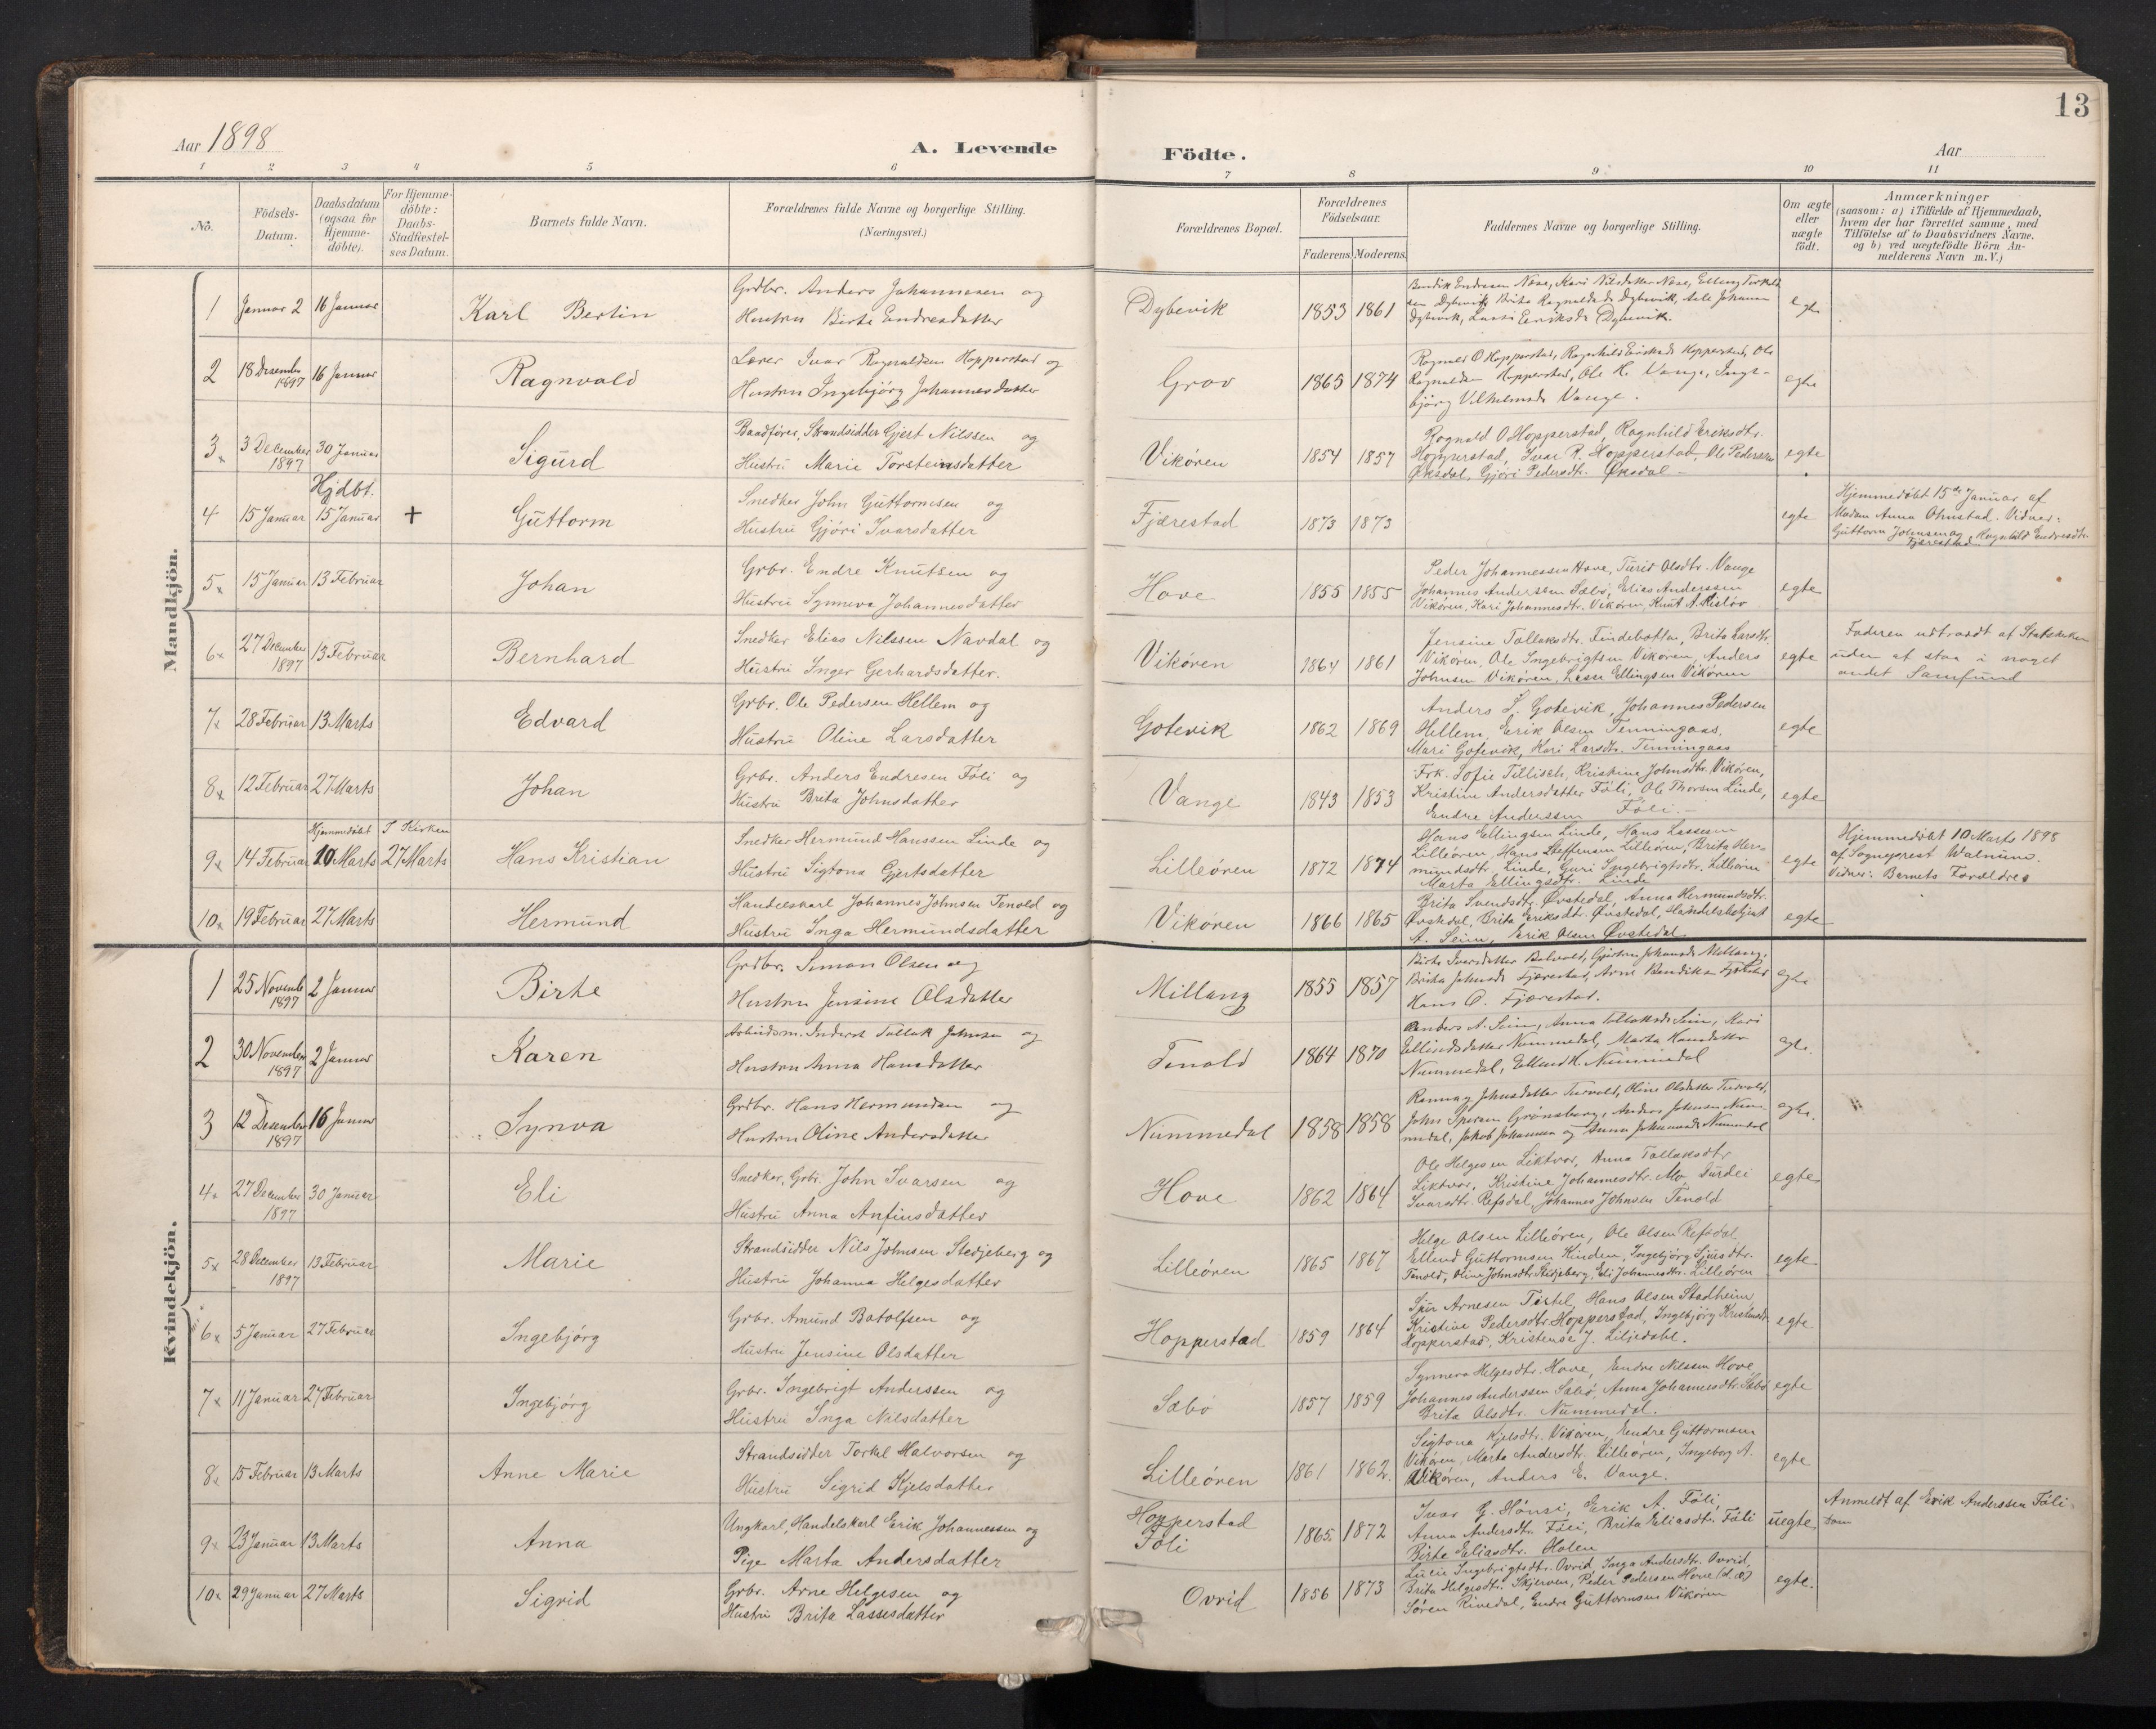 13
Aar 1898
A. Levende
Födte.
Aar
1 2 3 4 5 6 7 8 9 10 11
No.
Födsels-
Datum.
Daabsdatum
(ogsaa for
Hjemme-
döbte).
For Hjemme-
döbte:
Daabs-
Stadfæstel-
ses Datum.
Barnets fulde Navn.
Forældrenes fulde Navne og borgerlige Stilling.
(Næringsvei.)
Forældrenes Bopæl.
Forældrenes
Födselsaar.
Faderens. Moderens.
Faddernes Navne og borgerlige Stilling.
Om ægte
eller
uægte
födt.
Anmærkninger
(saasom: a) i Tilfælde af Hjemmedaab,
hvem der har forrettet samme, med
Tilföielse af to Daabsvidners Navne.
og b) ved uægtefödte Börn An-
melderens Navn m.V.)
Mandkjön.
1 Januar 2 16 Januar
Karl Bertin
Grdbr. Anders Johannesen og
Hustru Birte Endresdatter
Dybevik 1853 1861
egte
2 18 Desember 1897 16 Januar
Ragnvald
Lærer Ivar Ragnvaldsen Hopperstad og
Hustru Ingebjörg Johannesdatter
Grov 1865 1874
Ragnald O Hopperstad, Ragnhild Eriksdt Hopperstad, Ole
Ragnaldsen Hopperstad, Ole H. Vange, Inge-
björg Vilhelmsdt Vange.
egte
3x 3 December 1897 30 Januar
Sigurd
Baadförer, Strandsidder Gjert Nilssen og
Hustru Marie Torsteinsdatter
Vikören 1854 1857
Ragnald O Hopperstad, Ragnhild Eriksdtr.
Hopperstad, Ivar R. Hopperstad, Ole Pedersen
Øksdal, Gjöri Pedersdtr. Øksdal -
egte
4 15 Januar Hjdbt. 15 Januar +
Guttorm
Snedker John Guttormsen og
Hustru Gjöri Ivarsdatter
Fjærestad 1873 1873
egte
Hjemmedöbt 15de Januar af
Madam Anna Ohnstad. Vidner:
Guttorm Johnsen og Ragnhild Endresdtr.
Fjærestad
5x 15 Januar 13 Februar
Johan
Grbr. Endre Knutsen og
Hustru Synneva Johannesdatter
Hove 1855 1855
Peder Johannessen Hove, Turid Olsdtr. Vange
Johannes Anderssen Sæbö, Elias Anderssen
Vikören, Kari Johannesdtr. Vikören, Knut A.
egte
6x 27 December 1897 13 Februar
Bernhard
Snedker Elias Nilssen Navdal og
Hustru Inger Gerhardsdatter.
Vikören 1864 1861
Jensine Tollaksdtr. Findebotten, Brita Larsdtr.
Vikören, Ole Ingebrigtsen Vikören, Anders
Johnsen Vikören, Lasse Ellingsen Vikören
egte
Faderen udtraadt af Statskirken
uden at staa i noget
andet Samfund
7x 28 Februar 13 Marts
Edvard
Grbr. Ole Pedersen Hellem og
Hustru Oline Larsdatter
Gotevik 1862 1869
Anders L. Gotevik, Johannes Pedersen
Hellem, Erik Olsen Tenningaas,
Mari Gotevik, Kari Larsdtr. Tenningaas
egte
8x 12 Februar 27 Marts
Johan
Grbr. Anders Endresen Föli og
Hustru Brita Johnsdatter
Vange 1843 1853
Frk. Sofie Tillisch, Kristine Johnsdtr. Vikören,
Kristine Andersdatter Föli, Ole Thorsen Linde,
Endre Anderssen Föli. -
egte
9x 14 Februar Hjemmedöbt 10 Marts I Kirken 27 Marts
Hans Kristian
Snedker Hermund Hanssen Linde og
Hustru Sigtona Gjertsdatter
Lilleören 1872 1874
Hans Ellingsen Linde, Hans Lassesen
Lilleören, Hans Steffensen Lilleören, Brita Her-
mundsdtr. Linde, Guri Ingebrigtsdtr. Lilleören
Marta Ellingsdtr. Linde
egte
Hjemmedöbt 10 Marts 1898
af Sogneprest Walnum.
Vidner: Barnets Forældre
10x 19 Februar 27 Marts
Hermund
Handelskarl Johannes Johnsen Tenold og
Hustru Inga Hermundsdatter
Vikören 1866 1865
Brita Svendsdtr. Øvstedal, Anna Hermundsdtr.
Øvstedal, Brita Eriksdtr. Øvstedal, Handelsbetjent
A. Seim, Erik Olsen Øvstedal
egte
Kvindekjön.
1 25 November 1897 2 Januar
Birthe
Grdbr. Simon Olsen og
Hustru Jensine Olsdatter
Millang 1855 1857
Hans O. Fjærestad.
egte
2 30 November 1897 2 Januar
Karen
Arbeidsm. Inderst Tollak Johnsen og
Hustru Anna Hansdatter
Tenold 1864 1870
Anders A. Seim, Anna Tollaksdt Seim, Kari
Ellindsdatter Nummedal, Marta Hansdatter
Nummedal, Ellend H. Nummedal
egte.
3 12 Desember 1897 16 Januar
Synva
Grdbr. Hans Hermundsen og
Hustru Oline Andersdatter
Nummedal 1858 1858
egte.
4x 27 December 1897 30 Januar
Eli
Snedker, Grbr. John Ivarsen og
Hustru Anna Anfinsdatter
Hove 1862 1864
Ole Helgesen Liktvor, Anna Tollaksdtr
Liktvor, Kristine Johannesdtr. Mo, Durdei
Ivarsdtr. Refsdal, Johannes Johnsen Tenold
egte
5x 28 December 1897 13 Februar
Marie
Strandsidder Nils Johnsen Stedjeberg og
Hustru Johanna Helgesdatter
Lilleören 1865 1867
Helge Olsen Lilleören, Ole Olsen Refsdal,
Ellend Guttormsen Hinden, Ingebjörg Sjursdtr.
Tenold, Oline Johnsdtr. Stedjeberg, Eli Johannesdtr. Lilleören
egte
6x 5 Januar 27 Februar
Ingebjörg
Grbr. Amund Botolfsen og
Hustru Jensine Olsdatter
Hopperstad 1859 1864
Sjur Arnesen Tistel, Hans Olsen Stadheim,
Kristine Pedersdtr. Hopperstad, Ingebjörg Kristensdt.
Hopperstad, Kristense J. Liljedahl.
egte
7x 11 Januar 27 Februar
Ingebjörg
Grbr. Ingebrigt Anderssen og
Hustru Inga Nilsdatter
Sæbö 1857 1859
Synneva Helgesdtr. Hove, Endre Nilssen Hove,
Johannes Anderssen Sæbö, Anna Johannesdtr. Sæbö
Brita Olsdtr. Nummedal.
egte
8x 15 Februar 13 Marts
Anne Marie
Strandsidder Torkel Halvorsen og
Hustru Sigrid Kjelsdatter
Lilleören 1861 1862.
Sigtona Kjelsdtr. Vikören, Endre Guttormsen
Vikören, Marta Andersdtr. Lilleören, Ingeborg A.
Vikören, Anders E. Vange.
egte
9x 23 Januar 13 Marts
Anna
Ungkarl, Handelskarl Erik Johannessen og
Pige Marta Andersdatter
Hopperstad
Föli
1865. 1872
Ivar G. Hönsi, Erik A. Föli,
Anna Andersdtr. Föli, Brita Eliasdtr. Föli
Birte Eliasdtr. Holen
uegte
Anmeldt af Erik Anderssen Föli
10x 29 Januar 27 Marts
Sigrid
Grbr. Arne Helgesen og
Hustru Brita Lassesdatter
Ovrid 1856 1873
Lucie Ingebrigtsdtr. Ovrid, Inga Andersdtr. Ovrid,
Brita Helgesdtr. Skjerven, Peder Pedersen Hove (d.æ)
Sören Rinedal, Endre Guttormsen Vikören
egte.